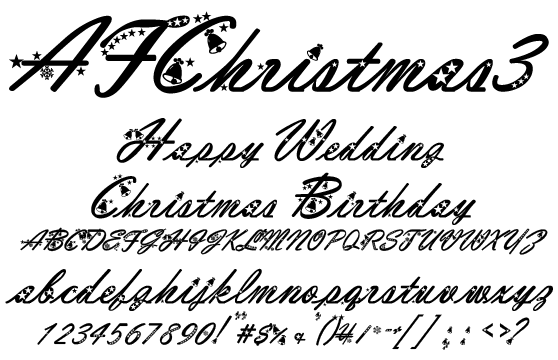 AFChristmas3
Happy Wedding
Christmas Birthday
ABCDEFGHIJKLMNOPQRSTUVWXYZ
abcdefghijklmnopqrstuvwxyz
1234567890! #$% & ()¥/ [ ] : ; <>?